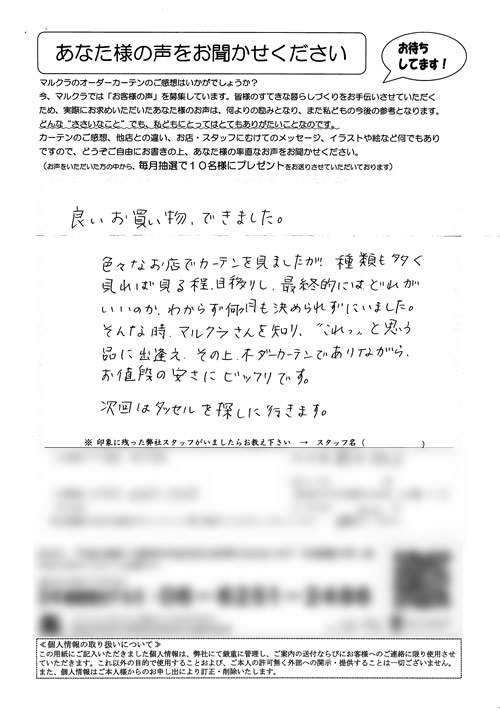 あなた様の声をお聞かせください
お待ち
してます!
マルクラのオーダーカーテンのご感想はいかがでしょうか?
今、マルクラでは「お客様の声」を募集しています。皆様のすてきな暮らしづくりをお手伝いさせていただく
ため、実際にお求めいただいたあなた様のお声は、何よりの励みとなり、また私どもの今後の参考となります。
どんな“ささいなこと”でも、私どもにとってはとてもありがたいことなのです。
カーテンのご感想、他店との違い、お店・スタッフにむけてのメッセージ、イラストや絵など何でもあり
ですので、どうぞご自由にお書きの上、あなた様の率直なお声をお聞かせください。
(お声をいただいた方の中から、毎月抽選で10名様にプレゼントをお送りさせていただいております)
良いお買い物、できました。
色々なお店でカーテンを見ましたが! 種類も多く
見れば見る程、目移りし、最終的にはどれが
いいのか、わからず何ヶ月も決められずにいました。
そんな時、マルクラさんを知り、“これっ”と思う
品に出逢え、その上、オーダーカーテンでありながら、
お値段の安さにビックリです。
次回はタッセルを探しに行きます。
※ 印象に残った弊社スタッフがいましたらお教え下さい → スタッフ名( )
06-6251-2486
≪個人情報の取り扱いについて≫
この用紙にご記入いただきました個人情報は、弊社にて厳重に管理し、ご案内の送付ならびにお客様へのご連絡に限り使用させ
ていただきます。これ以外の目的で使用することおよび、ご本人の許可無く外部への開示・提供することは一切ございません。
また、個人情報はご本人様からのお申し出により訂正・削除いたします。